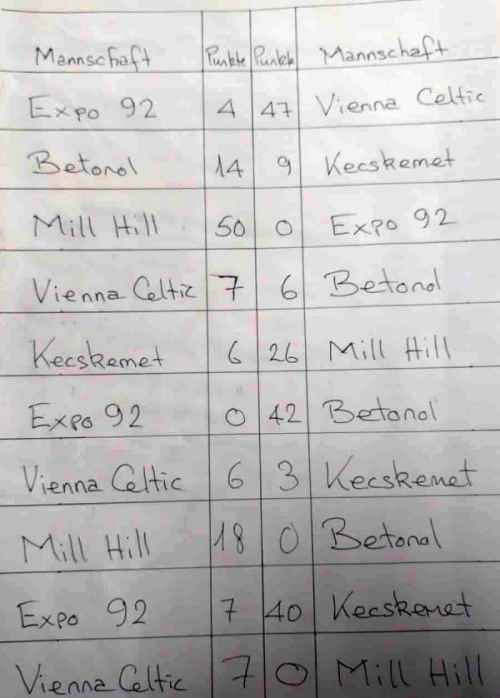 Mannschaft Punkte Punkte Mannschaft
Expo 92 4 47 Vienna Celtic
Betonol 14 9 Kecskemet
Mill Hill 50 0 Expo 92
Vienna Celtic 7 6 Betonol
Kecskemet 6 26 Mill Hill
Expo 92 0 42 Betonol
Vienna Celtic 6 3 Kecskemet
Mill Hill 18 0 Betonol
Expo 92 7 40 Kecskemet
Vienna Celtic 7 0 Mill Hill